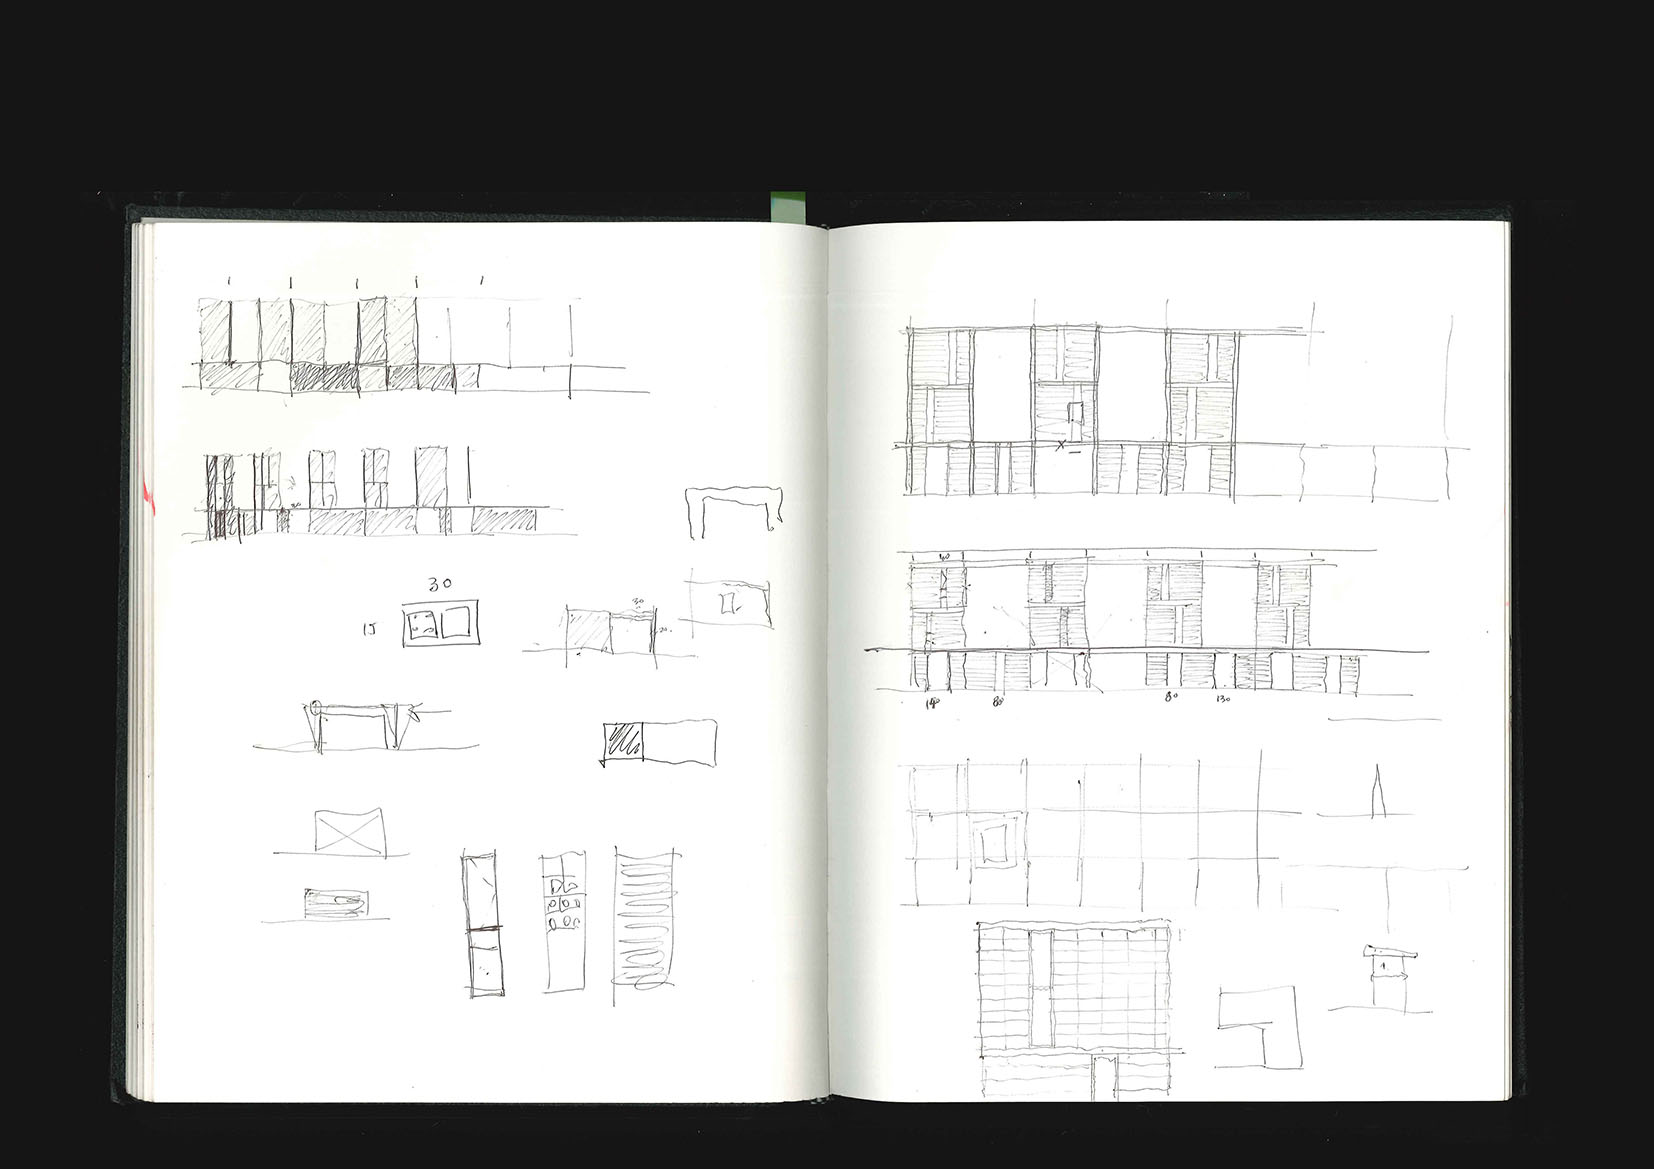 30
15
30
20
40
140
80
80
130